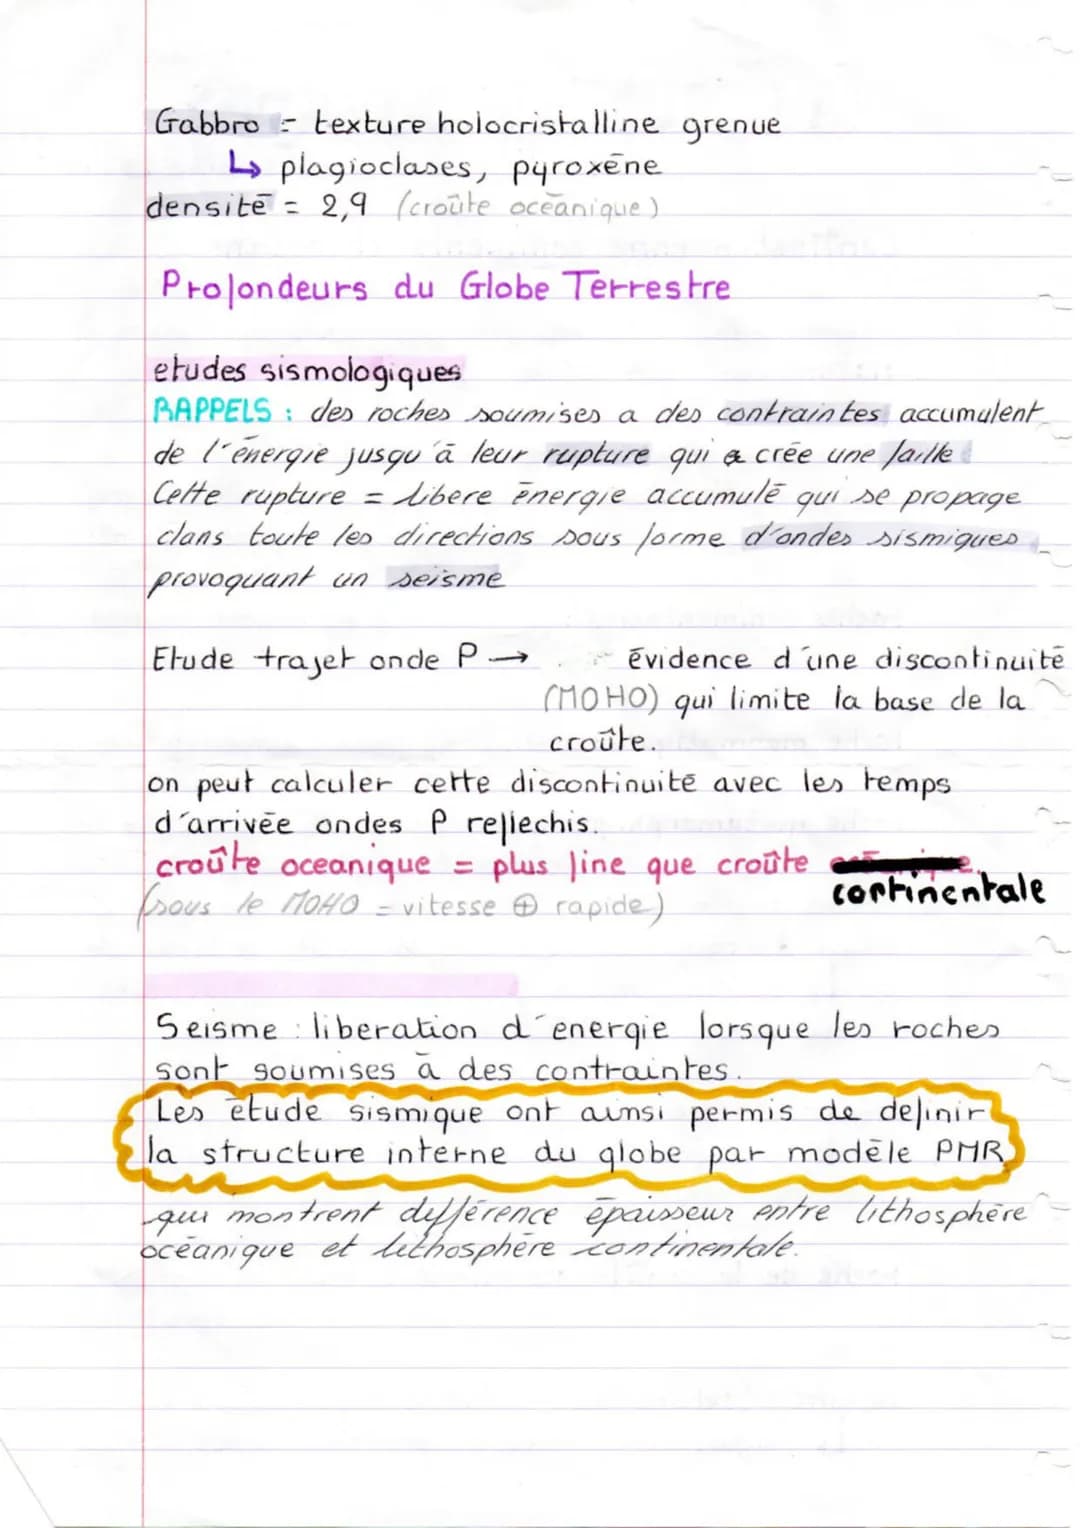 Gabbro = texture holocristalline grenue
↳ plagioclases, pyroxēne
densitē = 2,9 (croûte ocēanique)
Profondeurs du Globe Terrestre
etudes sismologiques
RAPPELS : des roches soumises a des contraintes accumulent
de l'ēnergie jusqu'ā leur rupture qui a crēe une faille
Cette rupture = libere ēnergie accumulē qui se propage
dans toute les directions sous forme d'ondes sismiques
provoquant un seisme
Etude trajet onde P → ēvidence d'une discontinuitē
(MOHO) qui limite la base de la
croûte.
on peut calculer cette discontinuitē avec les temps
d'arrivēe ondes P reflechis.
croûte oceanique = plus fine que croûte
continentale
(sous le MOHO = vitesse ⊕ rapide)
Seisme : liberation d'energie lorsque les roches
sont soumises ā des contraintes.
Les ētude sismique ont ainsi permis de definir
la structure interne du globe par modēle PMR
qui montrent diffērence ēpaisseur entre lithosphēre
ocēanique et lithosphēre continentale.